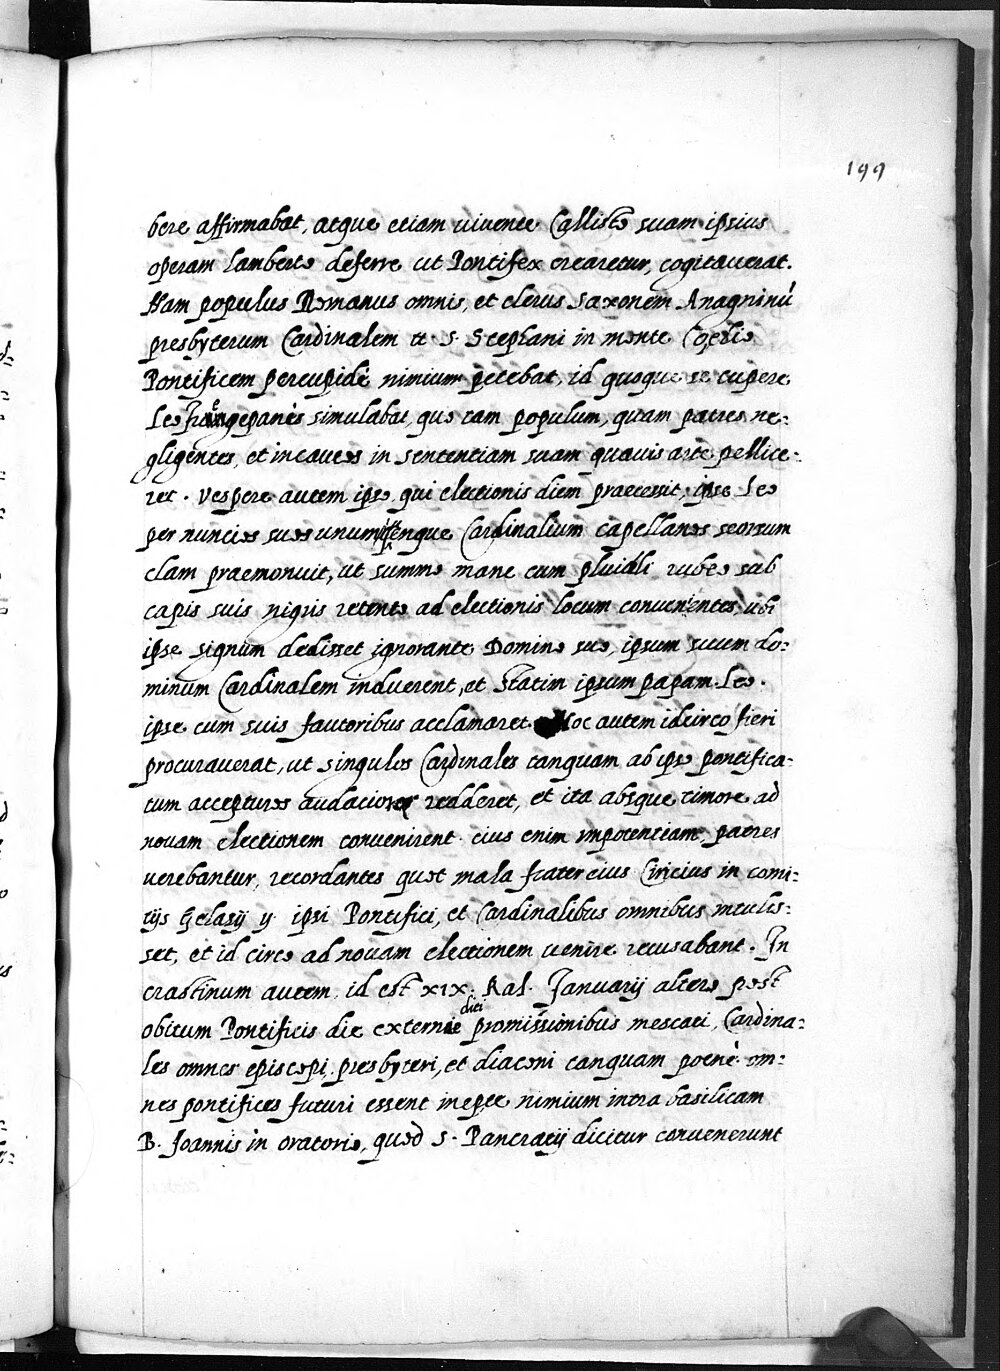 199
bere affirmabat, atque etiam vivente Callisto suam ipsius
operam lamberto deferre ut Pontifex crearetur, cogitaverat.
Nam populus Romanus omnis, et clerus Saxonem Anagninũ
presbyterum Cardinalem tt. S. Stephani in monte Coelio
Pontificem percupidè nimium petebat, id quoque se cupere
Leo Frangepanès simulabat, quo tam populum, quam patres ne:
gligentes, et incautos in sententiam suam quavis arte pellice:
ret. Vespere autem ipso, qui electionis diem praecessit, ipse Leo
per nuncios suos unumquenque Cardinalium capellanos seorsum
clam praemonuit, ut summo mane cum pluviali rubeo sub
capis suis nigris retento ad electionis locum convenientes, ubi
ipse signum dedisset ignorante Domino suo, ipsum suum do:
minum Cardinalem induerent, et statim ipsum papam. Leo.
ipse cum suis fautoribus acclamaret. Hoc autem idcirco fieri
procuraverat, ut singulos Cardinales tanquam ab ipso pontifica:
tum accepturos audaciores redderet, et ita absque timore ad
novam electionem convenirent. eius enim impotentiam patres
verebantur, recordantes quot mala frater eius Cincius in comi:
tijs Gelasij ij. ipsi Pontifici, et Cardinalibus omnibus intulis:
set, et id circo ad novam electionem venire recusabant. In
crastinum autem, id est XIX. Kal. Januarij altero post
obitum Pontificis die externe promissionibus mescati, Cardina:
les omnes episcopi, presbyteri, et diaconi tanquam poenè om:
nes pontifices futuri essent inepte nimium intra basilicam
B. Joannis in oratorio, quod S. Pancratij dicitur convenerunt